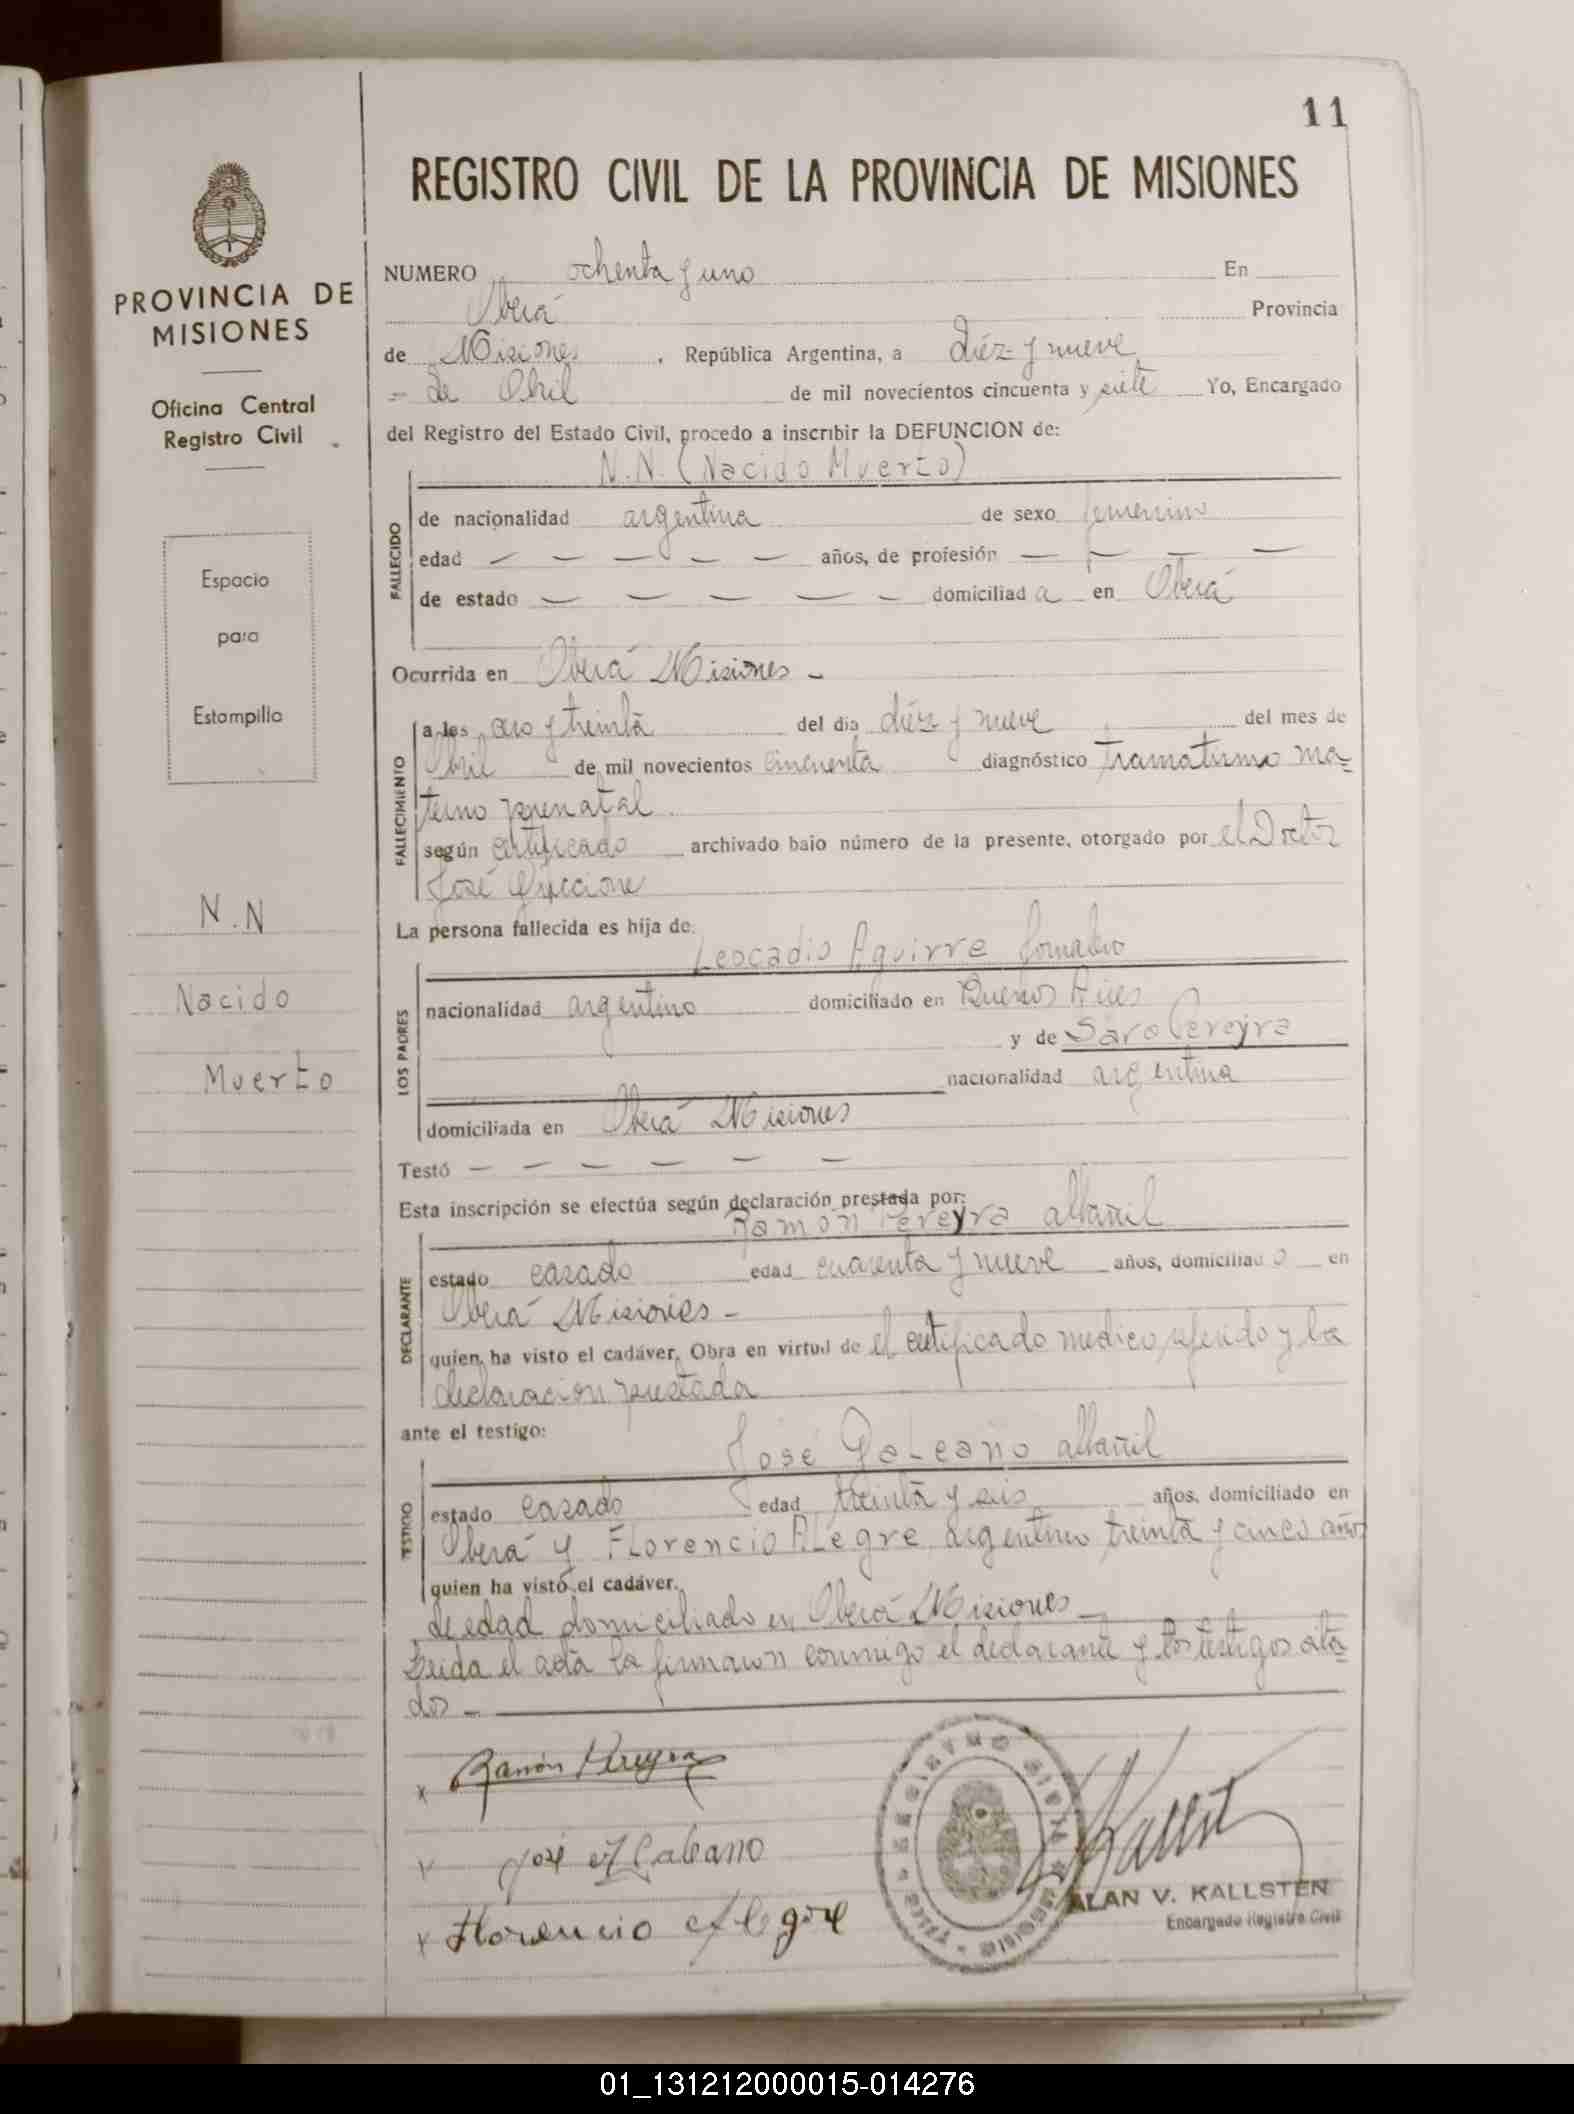 11
REGISTRO CIVIL DE LA PROVINCIA DE MISIONES
PROVINCIA DE
MISIONES
Oficina Central
Registro Civil
Espacio
para
Estampilla
N.N
Nacido
Muerto
NUMERO ochenta y uno En
Oberá Provincia
de Misiones, República Argentina, a diéz y nueve
de Abril de mil novecientos cincuenta y siete Yo, Encargado
del Registro del Estado Civil, procedo a inscribir la DEFUNCION de:
N.N. (Nacido Muerto)
FALLECIDO
de nacionalidad argentina de sexo femenino
edad — — — — — años, de profesión — — — —
de estado — — — — — domiciliada en Oberá
Ocurrida en Oberá Misiones -
FALLECIMIENTO
a las cero y treinta del dia diéz y nueve del mes de
Abril de mil novecientos cincuenta diagnóstico tramatismo ma=
terno prenatal
según certificado archivado bajo número de la presente, otorgado por el Doctor
José
La persona fallecida es hija de:
Leocadio Aguirre Jornalero
LOS PADRES
nacionalidad argentino domiciliado en Buenos Aires
y de Sara Pereyra
nacionalidad argentina
domiciliada en Oberá Misiones
Testó — — — — — —
Esta inscripción se efectúa según declaración prestada por:
Ramón Pereyra albañil
DECLARANTE
estado casado edad cuarenta y nueve años, domiciliado en
Oberá Misiones -
quien ha visto el cadáver. Obra en virtud de el certificado medico referido y la
declaracion prestada
ante el testigo:
José Galeano albañil
TESTIGO
estado casado edad treinta y seis años, domiciliado en
Oberá y Florencio Alegre argentino treinta y cinco años
quien ha visto el cadáver.
de edad domiciliado en Oberá Misiones -
Leida el acta la firmaron conmigo el declarante y los testigos cita=
dos -
x Ramón Pereyra
x José Galeano
x Florencio Alegre
REGISTRO CIVIL
MISIONES
Kallst
ALAN V. KALLSTEN
Encargado Registro Civil
01_131212000015-014276